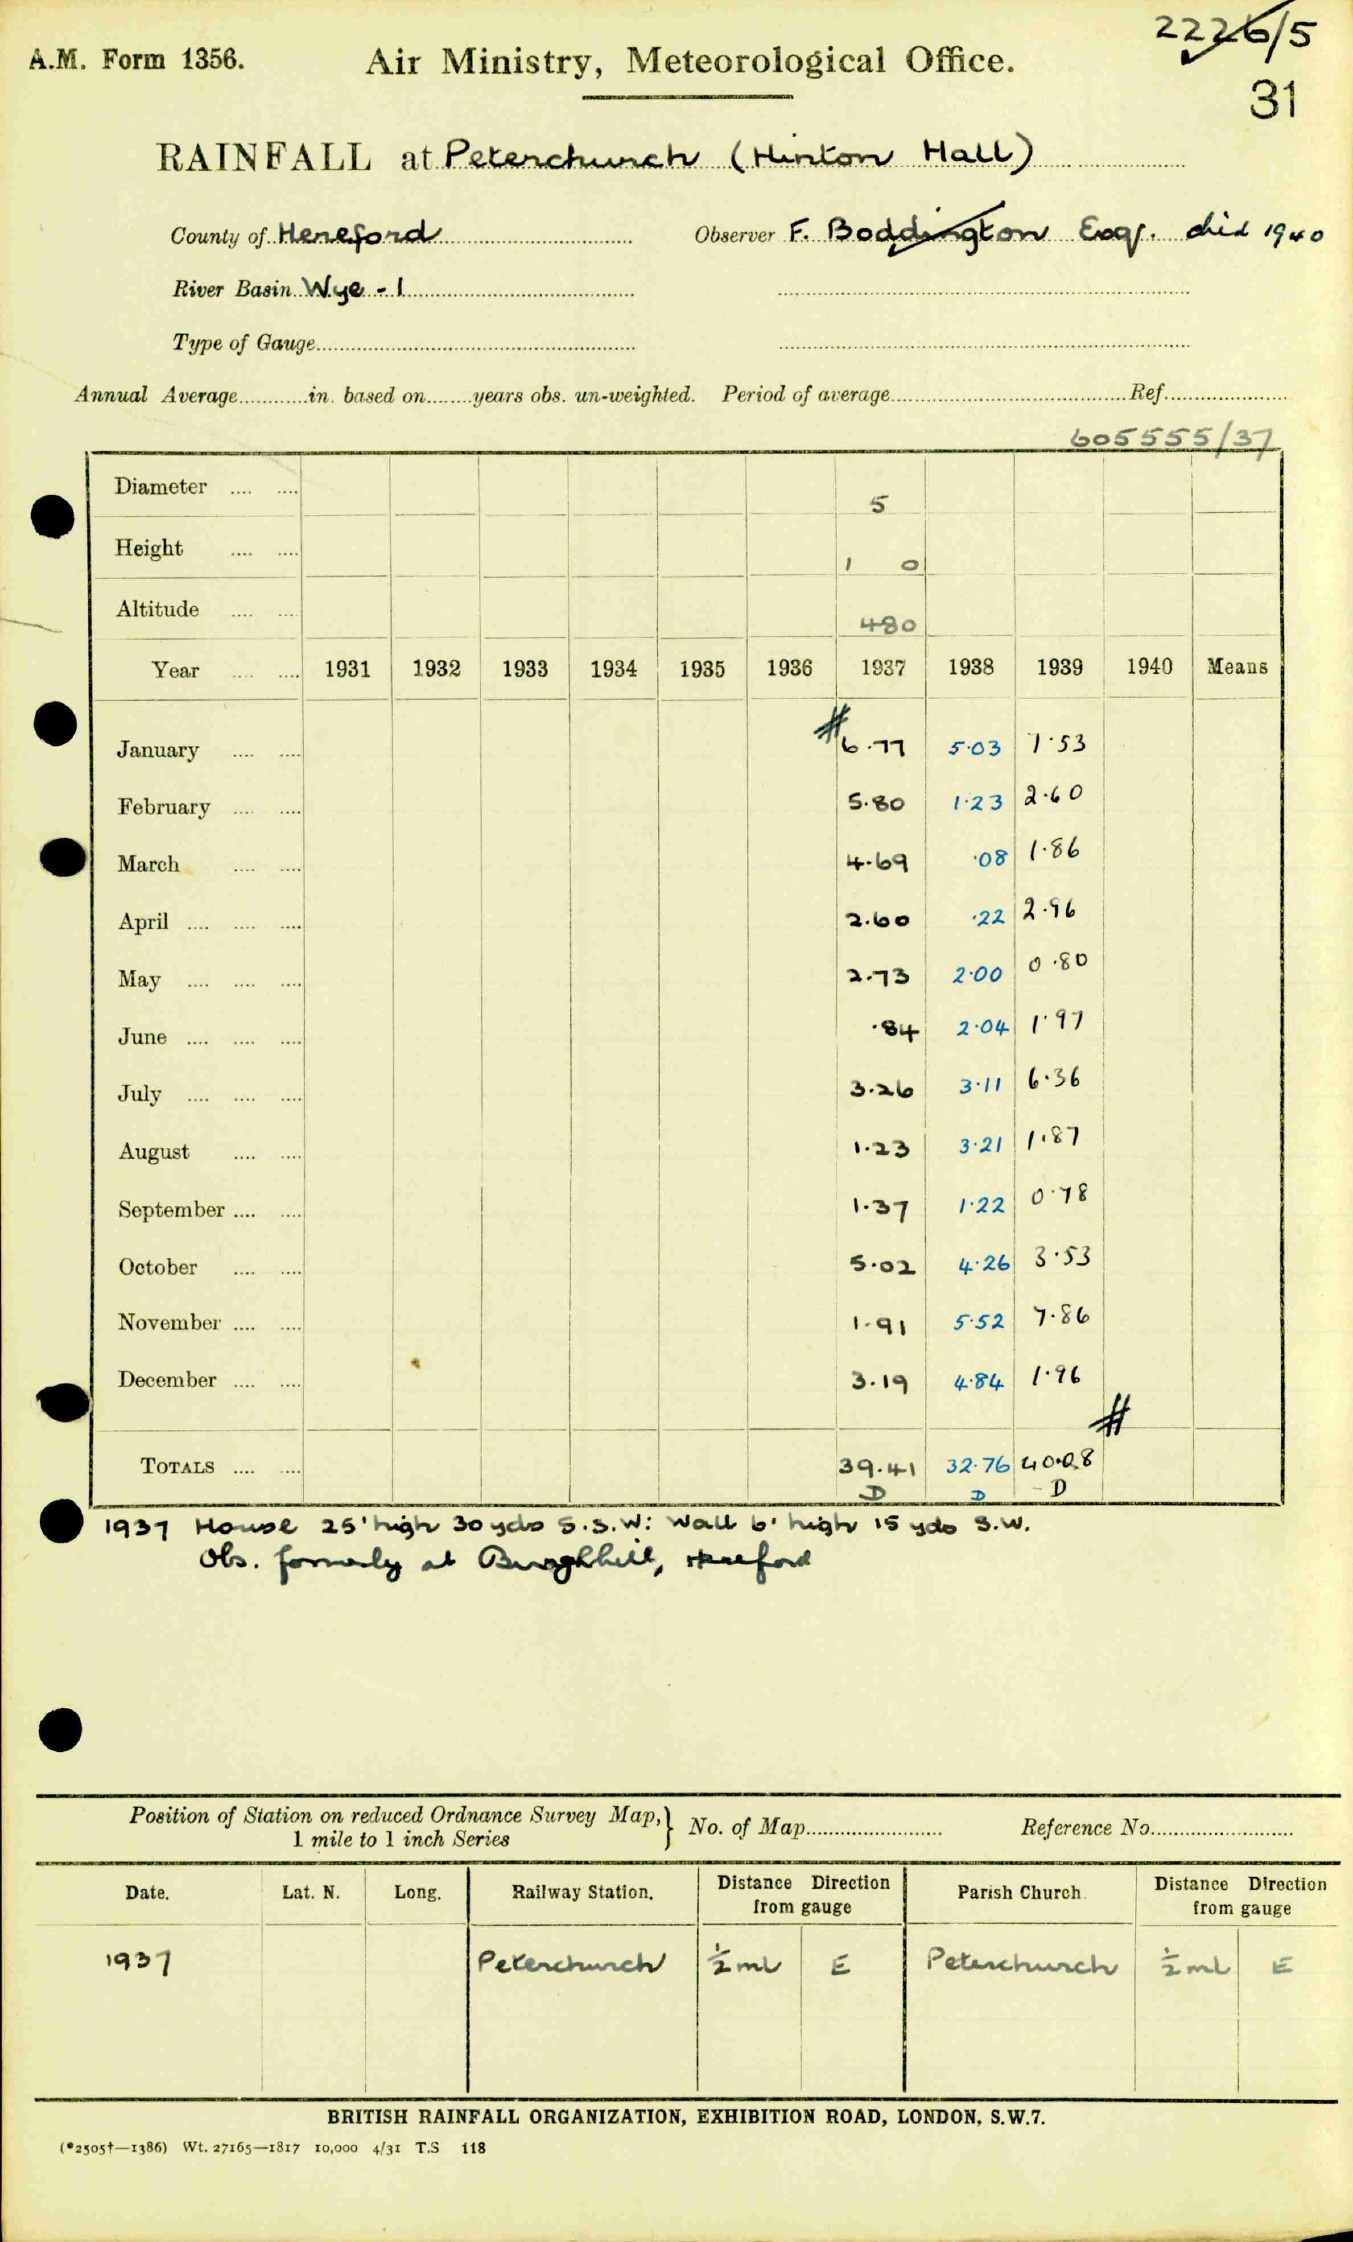 2226/5
A.M. Form 1356. Air Ministry, Meteorological Office.
31
RAINFALL at Peterchurch (Hinton Hall)
County of Hereford Observer F. Boddington Esq. died 1940
River Basin Wye - 1
Type of Gauge
Annual Average in. based on years obs. un-weighted. Period of average Ref.
605555/37
Diameter 5
Height 1 0
Altitude 480
Year 1931 1932 1933 1934 1935 1936 1937 1938 1939 1940 Means
January # 6.77 5.03 7.53
February 5.80 1.23 2.60
March 4.69 .08 1.86
April 2.60 .22 2.96
May 2.73 2.00 0.80
June .84 2.04 1.97
July 3.26 3.11 6.36
August 1.23 3.21 1.87
September 1.37 1.22 0.78
October 5.02 4.26 3.53
November 1.91 5.52 7.86
December 3.19 4.84 1.96
#
TOTALS 39.41 32.76 40.08
D D D
1937 House 25' high 30 yds S.S.W: Wall 6' high 15 yds S.W.
Obs. formerly at Burghhill, Hereford
Position of Station on reduced Ordnance Survey Map, } No. of Map Reference No.
1 mile to 1 inch Series
Date. Lat. N. Long. Railway Station. Distance Direction from gauge Parish Church Distance Direction from gauge
1937 Peterchurch ½ ml E Peterchurch ½ ml E
BRITISH RAINFALL ORGANIZATION, EXHIBITION ROAD, LONDON, S.W.7.
(*2505†—1386) Wt. 27165—1817 10,000 4/31 T.S 118